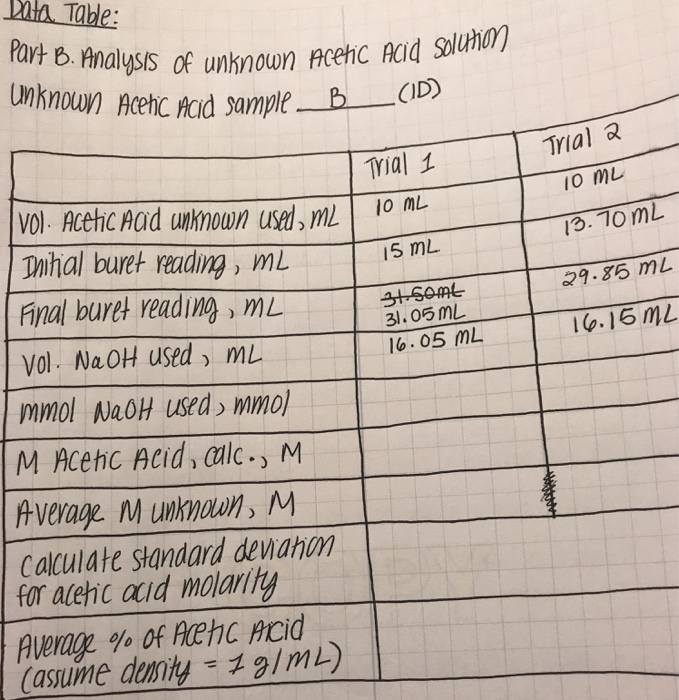 Data Table:
Part B. Analysis of unknown Acetic Acid solution
Unknown Acetic Acid sample B (ID)
Trial 1 Trial 2
Vol. Acetic Acid unknown used, mL 10 mL 10 mL
Initial buret reading, mL 15 mL 13.70 mL
Final buret reading, mL 31.50mL 31.05mL 29.85 mL
Vol. NaOH used, mL 16.05 mL 16.15 mL
mmol NaOH used, mmol
M Acetic Acid, calc., M
Average M unknown, M
Calculate standard deviation
for acetic acid molarity
Average % of Acetic Acid
(assume density = 1 g/mL)